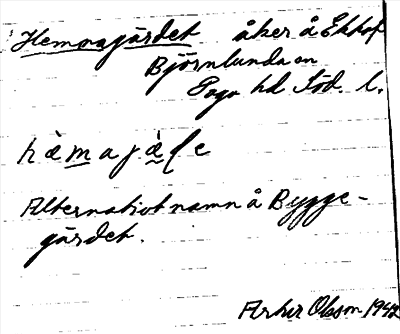 Hemmagärdet åker å Ekhof
Björnlunda sn
Daga hd Söd. l.
Alternativt namn å Bygge-
gärdet.
Arhur Olsson 1942